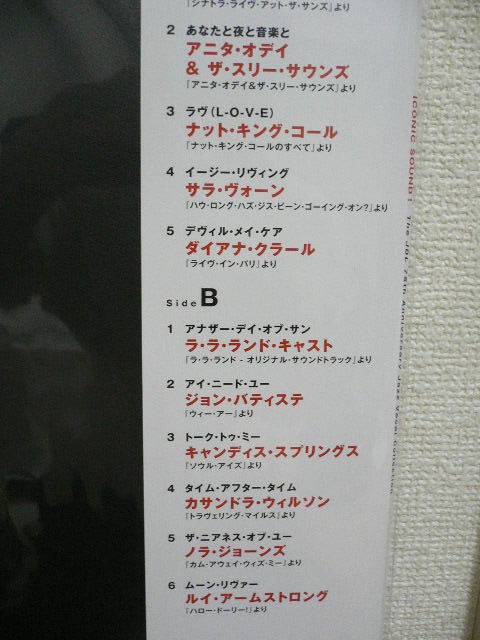 『シナトラ・ライヴ・アット・ザ・サンズ』より
2 あなたと夜と音楽と
アニタ・オデイ
& ザ・スリー・サウンズ
『アニタ・オデイ&ザ・スリー・サウンズ』より
3 ラヴ(L-O-V-E)
ナット・キング・コール
『ナット・キング・コールのすべて』より
4 イージー・リヴィング
サラ・ヴォーン
『ハウ・ロング・ハズ・ジス・ビーン・ゴーイング・オン?』より
5 デヴィル・メイ・ケア
ダイアナ・クラール
『ライヴ・イン・パリ』より
Side B
1 アナザー・デイ・オブ・サン
ラ・ラ・ランド・キャスト
『ラ・ラ・ランド - オリジナル・サウンドトラック』より
2 アイ・ニード・ユー
ジョン・バティステ
『ウィー・アー』より
3 トーク・トゥ・ミー
キャンディス・スプリングス
『ソウル・アイズ』より
4 タイム・アフター・タイム
カサンドラ・ウィルソン
『トラヴェリング・マイルス』より
5 ザ・ニアネス・オブ・ユー
ノラ・ジョーンズ
『カム・アウェイ・ウィズ・ミー』より
6 ムーン・リヴァー
ルイ・アームストロング
『ハロー・ドーリー!』より
ICONIC SOUND! The JBL 75th Anniversary Jazz Vocal Collection